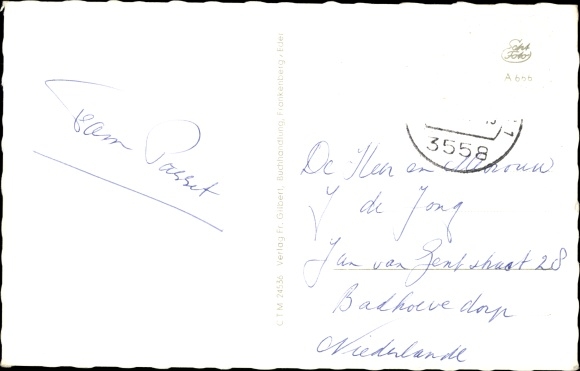 Echt
Foto
A 666
3558
De Heer en Mevrouw
J de Jong
Jan van Gentstraat 28
Badhoevedorp
Niederlande
CTM 24536 Verlag Fr. Gilbert, Buchhandlung, Frankenberg / Eder